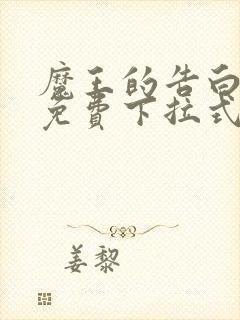 魔王的告白
免费下拉式
姜黎